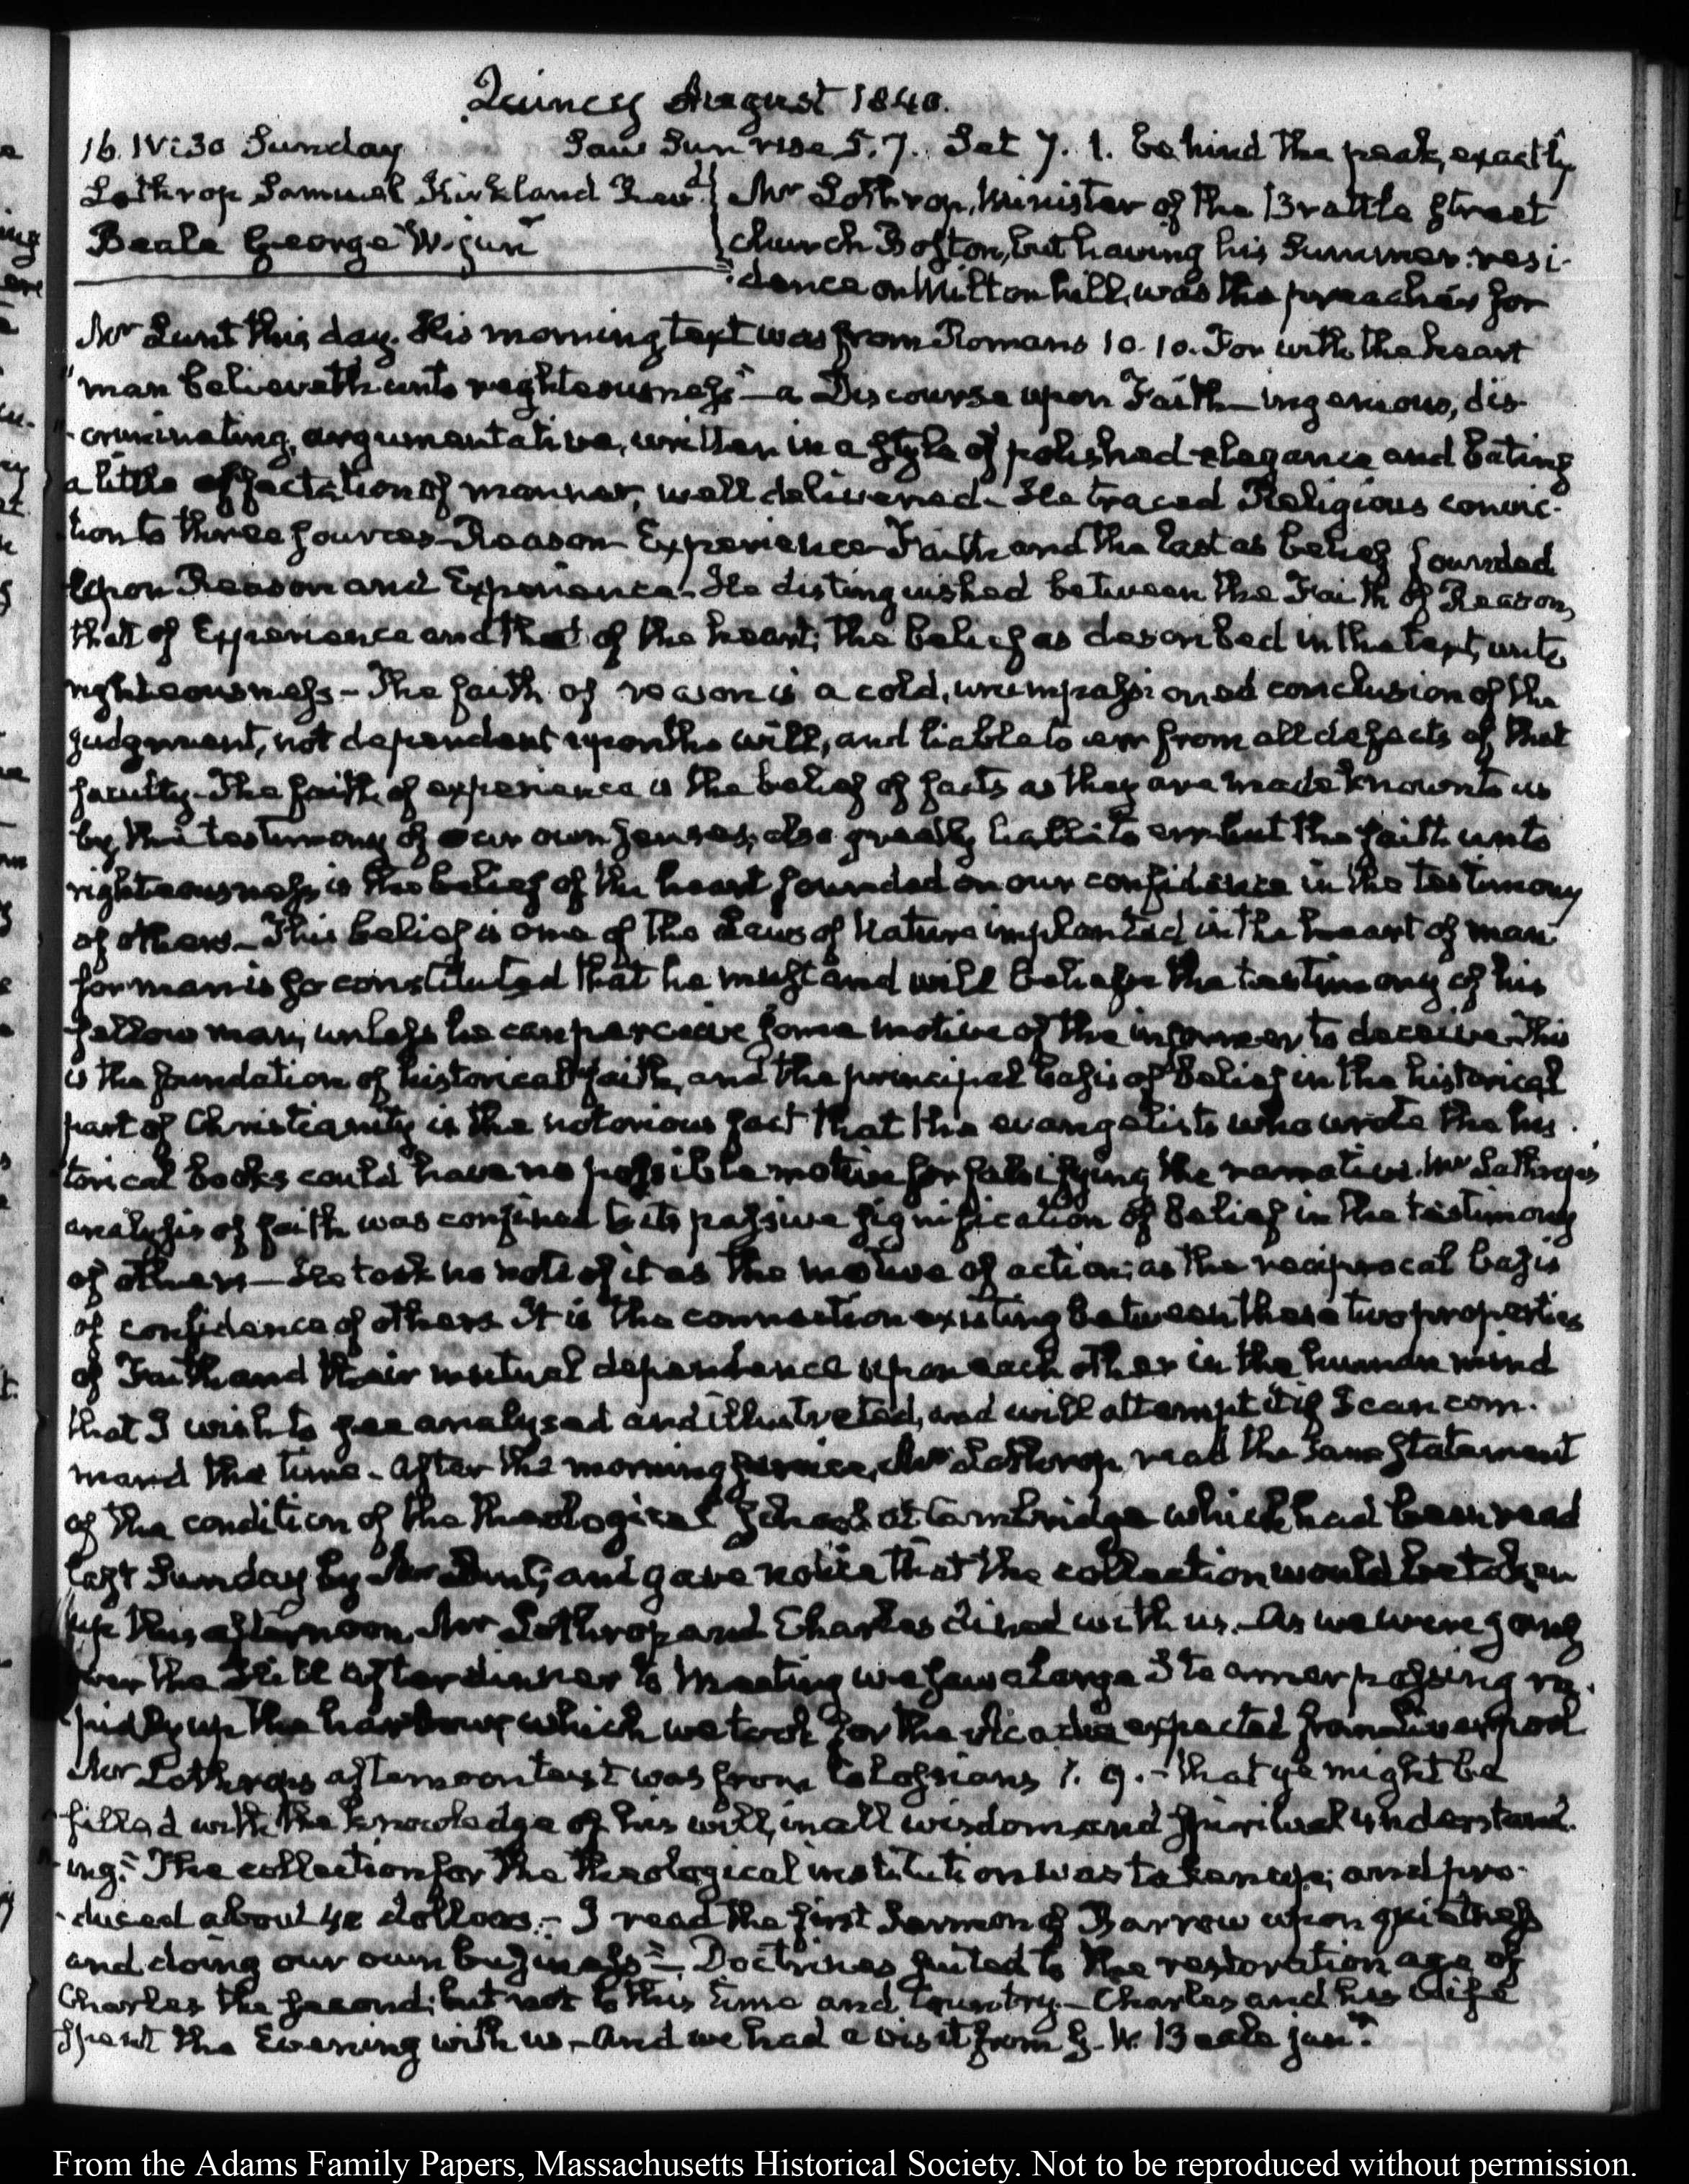 Quincy August 1840.
16. IV:30 Sunday Saw Sun rise 5.7. Set 7. 1. behind the peak, exactly
Lothrop Samuel Kirkland Revd. Mr Lothrop, Minister of the Brattle Street
Beale George W. junr church Boston, but having his Summer resi-
dence on Milton hill, was the preacher for
Mr Lunt this day. His morning text was from Romans 10.10. For with the heart
"man believeth unto righteousness" — a Discourse upon Faith — ingenious, dis-
criminating, argumentative, written in a style of polished elegance and bating
a little affectation of manner, well delivered. He traced Religious convic-
tion to three sources Reason Experience Faith and the last as belief founded
upon Reason and Experience. He distinguished between the Faith of Reason,
that of Experience and that of the heart; the belief as described in the text, unto
righteousness — The faith of reason is a cold, unimpassioned conclusion of the
judgment, not dependent upon the will, and liable to err from all defects of that
faculty. The faith of experience is the belief of facts as they are made known to us
by the testimony of our own senses, also greatly liable to err but the faith unto
righteousness is the belief of the heart founded on our confidence in the testimony
of others — This belief is one of the Laws of Nature implanted in the heart of man
for man is so constituted that he must and will believe the testimony of his
fellow man, unless he can perceive some motive of the informer to deceive. This
is the foundation of historical faith, and the principal basis of belief in the historical
part of Christianity is the notorious fact that the evangelists who wrote the his-
torical books could have no possible motive for falsifying the narrative. Mr Lothrop's
analysis of faith was confined to its passive signification of belief in the testimony
of others — He took no note of it as the motive of action; as the reciprocal basis
of confidence of others. It is the connection existing between these two properties
of Faith and their mutual dependence upon each other in the human mind
that I wish to see analysed and illustrated, and will attempt it if I can com-
mand the time. After the morning service, Mr Lothrop read the same statement
of the condition of the theological School at Cambridge which had been read
last Sunday by Mr Lunt, and gave notice that the collection would be taken
up this afternoon. Mr Lothrop and Charles dined with us. As we were going
over the Hill after dinner to Meeting we saw a large Steamer passing ra-
pidly up the harbour, which we took for the Acadia expected from Liverpool
Mr Lothrop's afternoon text was from Colossians 1. 9. — "that ye might be
filled with the knowledge of his will, in all wisdom and spiritual understand-
ing." The collection for the theological institution was taken up; and pro-
duced about 40 dollars. — I read the first Sermon of Barrow upon quietness
and doing our own business — Doctrines suited to the restoration age of
Charles the second; but not to this time and Country. — Charles and his Wife
spent the Evening with us — And we had a visit from G. W. Beale junr.
From the Adams Family Papers, Massachusetts Historical Society. Not to be reproduced without permission.